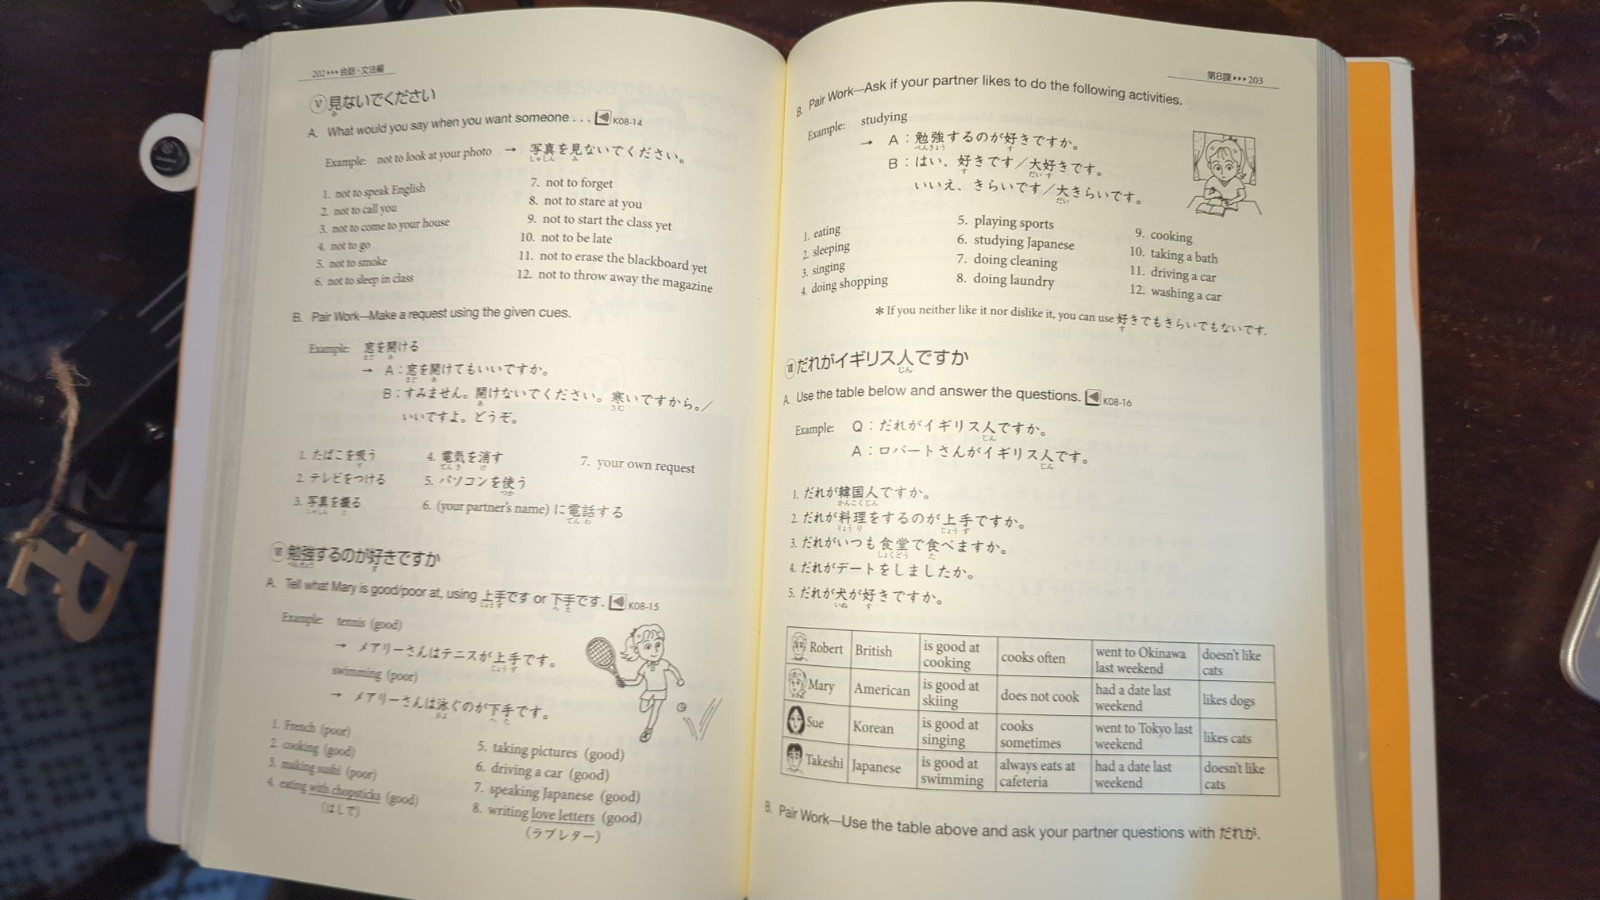 202▸▸▸会話・文法編
Ⅴ 見ないでください
み
A. What would you say when you want someone . . . K08-14
Example: not to look at your photo → 写真を見ないでください。
しゃしん み
1. not to speak English
2. not to call you
3. not to come to your house
4. not to go
5. not to smoke
6. not to sleep in class
7. not to forget
8. not to stare at you
9. not to start the class yet
10. not to be late
11. not to erase the blackboard yet
12. not to throw away the magazine
B. Pair Work—Make a request using the given cues.
Example: 窓を開ける
まど あ
→ A：窓を開けてもいいですか。
まど あ
B：すみません。開けないでください。寒いですから。／
あ さむ
いいですよ。どうぞ。
1. たばこを吸う
す
2. テレビをつける
3. 写真を撮る
しゃしん と
4. 電気を消す
でんき け
5. パソコンを使う
つか
6. (your partner's name) に電話する
でんわ
7. your own request
Ⅵ 勉強するのが好きですか
べんきょう す
A. Tell what Mary is good/poor at, using 上手です or 下手です. K08-15
じょうず へた
Example: tennis (good)
→ メアリーさんはテニスが上手です。
じょうず
swimming (poor)
→ メアリーさんは泳ぐのが下手です。
およ へた
1. French (poor)
2. cooking (good)
3. making sushi (poor)
4. eating with chopsticks (good)
(はしで)
5. taking pictures (good)
6. driving a car (good)
7. speaking Japanese (good)
8. writing love letters (good)
(ラブレター)
第8課▸▸▸203
B. Pair Work—Ask if your partner likes to do the following activities.
Example: studying
→ A：勉強するのが好きですか。
べんきょう す
B：はい、好きです／大好きです。
す だいす
いいえ、きらいです／大きらいです。
だい
1. eating
2. sleeping
3. singing
4. doing shopping
5. playing sports
6. studying Japanese
7. doing cleaning
8. doing laundry
9. cooking
10. taking a bath
11. driving a car
12. washing a car
＊If you neither like it nor dislike it, you can use 好きでもきらいでもないです.
す
Ⅶ だれがイギリス人ですか
じん
A. Use the table below and answer the questions. K08-16
Example: Q：だれがイギリス人ですか。
じん
A：ロバートさんがイギリス人です。
じん
1. だれが韓国人ですか。
かんこくじん
2. だれが料理をするのが上手ですか。
りょうり じょうず
3. だれがいつも食堂で食べますか。
しょくどう た
4. だれがデートをしましたか。
5. だれが犬が好きですか。
いぬ す
Robert British is good at cooking cooks often went to Okinawa last weekend doesn't like cats
Mary American is good at skiing does not cook had a date last weekend likes dogs
Sue Korean is good at singing cooks sometimes went to Tokyo last weekend likes cats
Takeshi Japanese is good at swimming always eats at cafeteria had a date last weekend doesn't like cats
B. Pair Work—Use the table above and ask your partner questions with だれが.